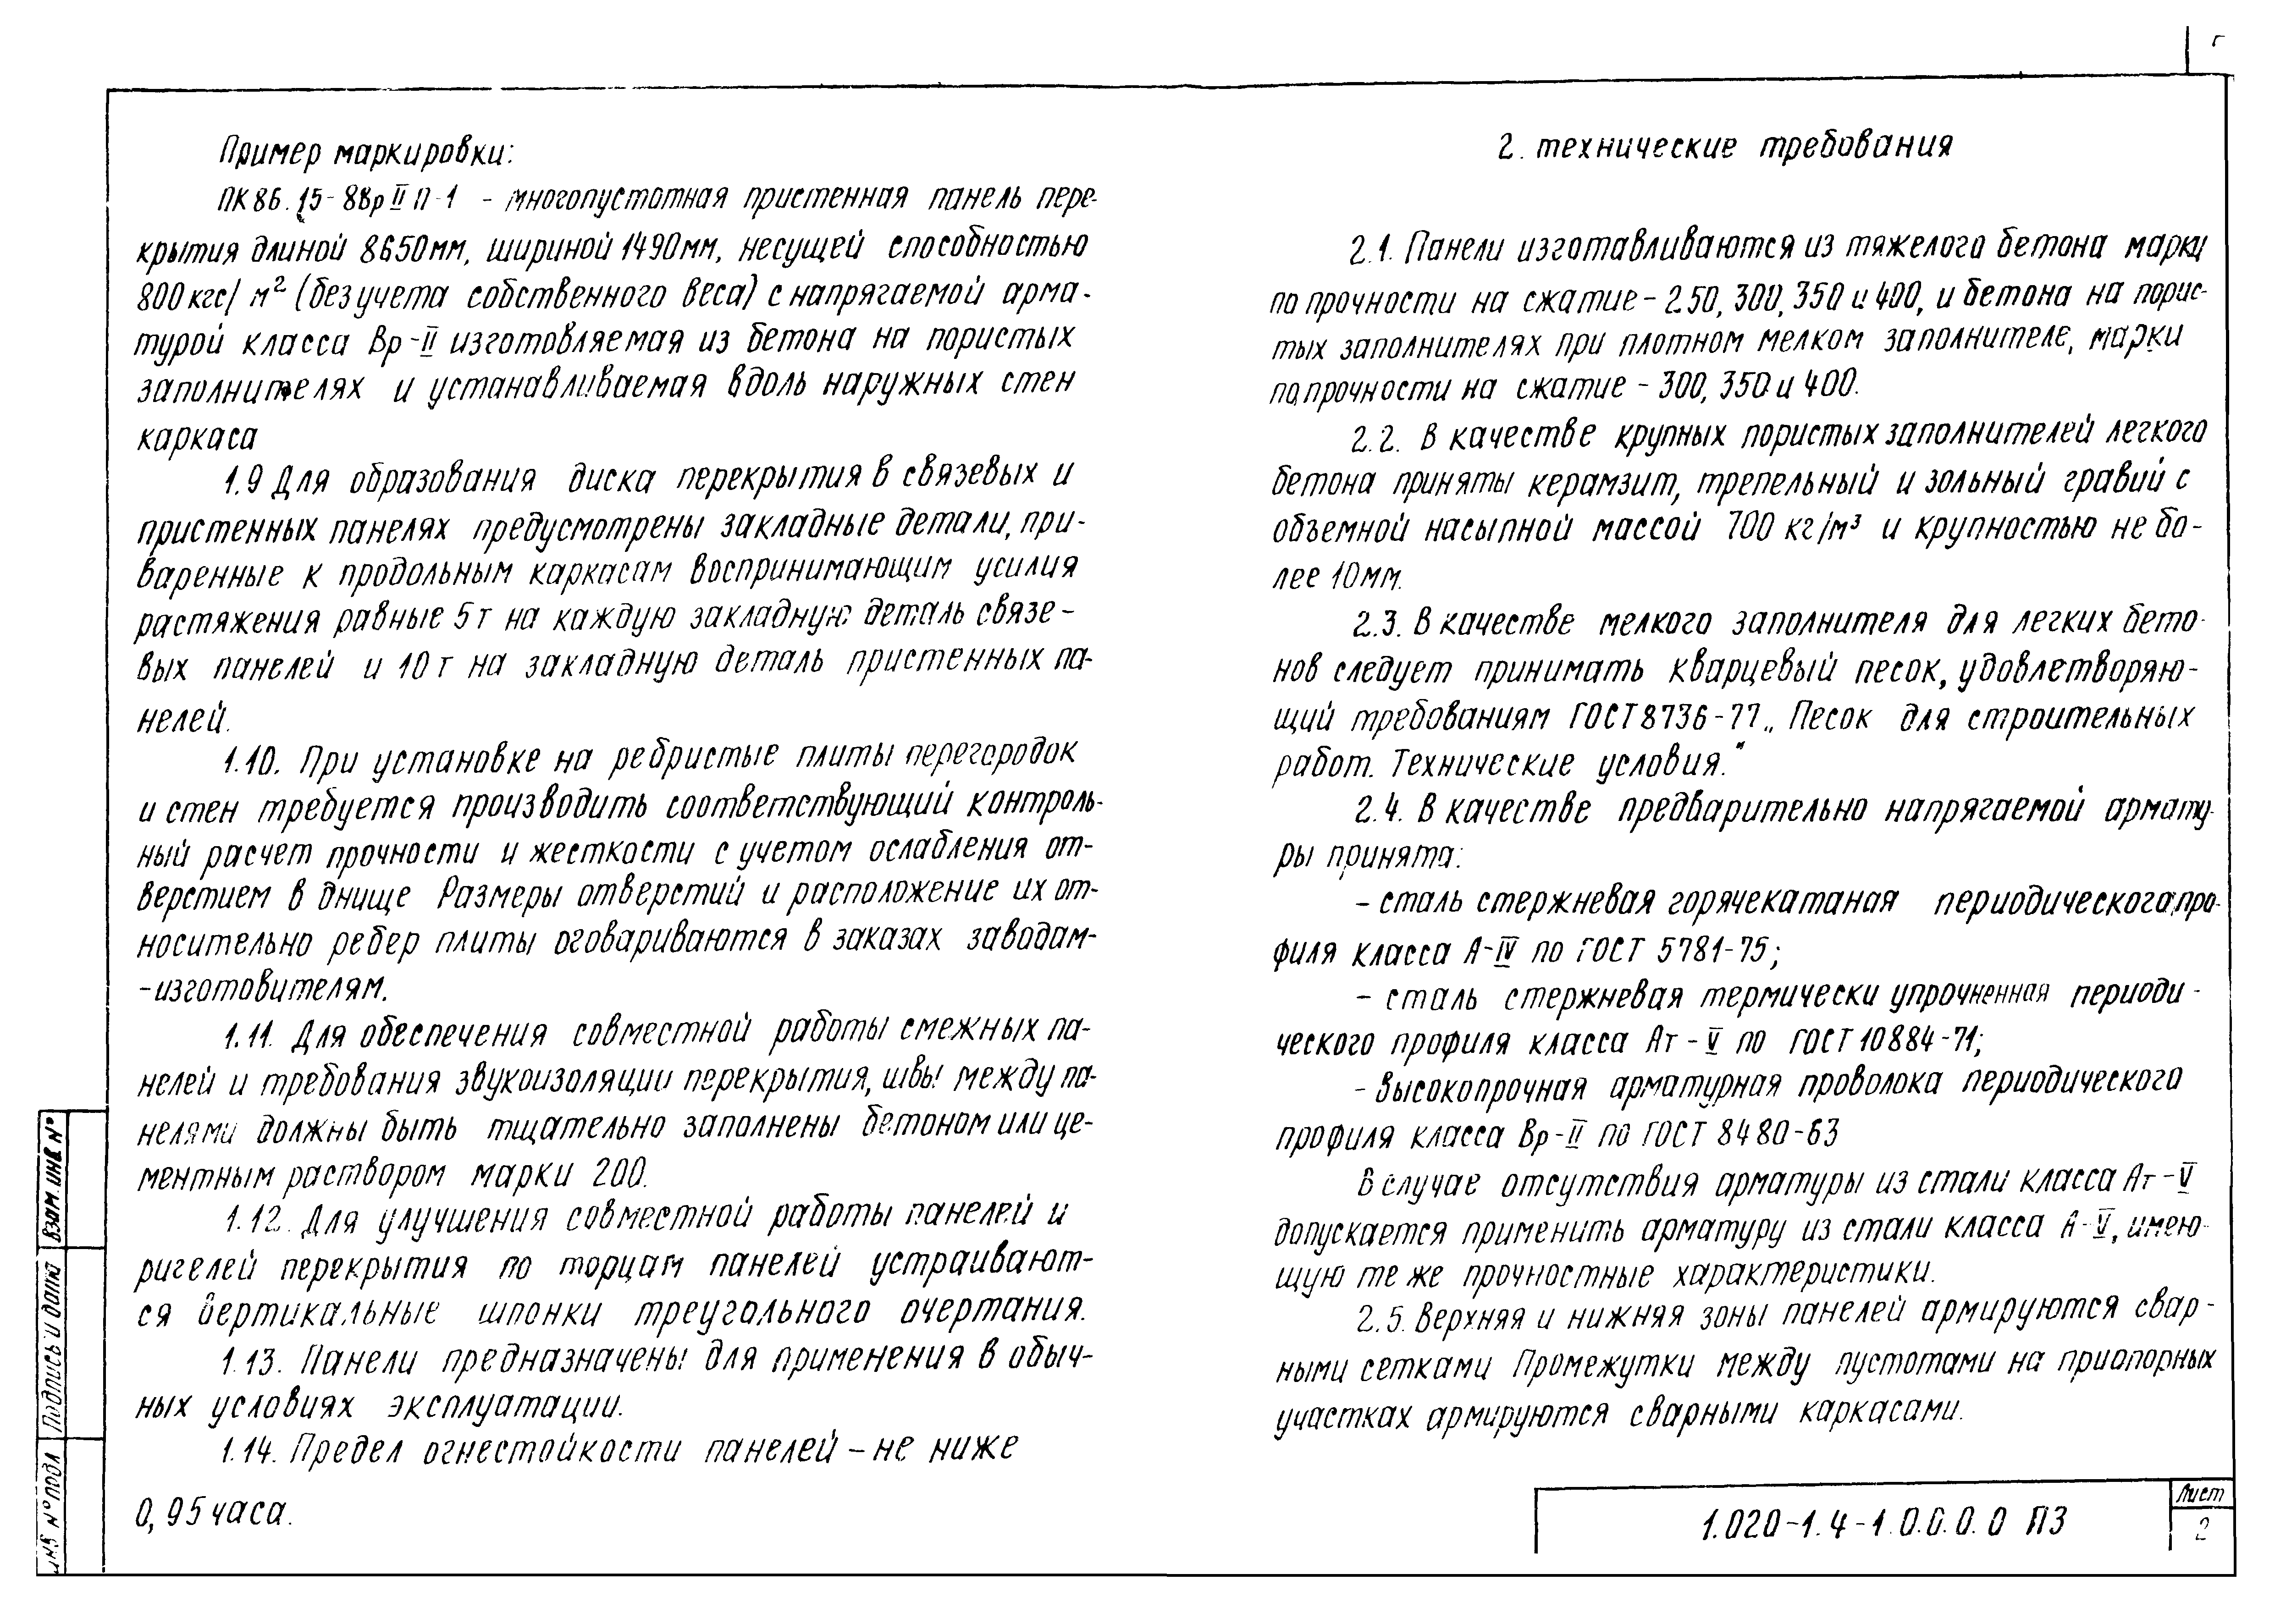 Пример маркировки:
ПК86.15-8ВрII П-1 - многопустотная пристенная панель пере-
крытия длиной 8650мм, шириной 1490мм, несущей способностью
800кгс/м² (без учета собственного веса) с напрягаемой арма-
турой класса Вр-II изготовляемая из бетона на пористых
заполнителях и устанавливаемая вдоль наружных стен
каркаса
1.9 Для образования диска перекрытия в связевых и
пристенных панелях предусмотрены закладные детали, при-
варенные к продольным каркасам воспринимающим усилия
растяжения равные 5т на каждую закладную деталь связе-
вых панелей и 10т на закладную деталь пристенных па-
нелей.
1.10. При установке на ребристые плиты перегородок
и стен требуется производить соответствующий контроль-
ный расчет прочности и жесткости с учетом ослабления от-
верстием в днище Размеры отверстий и расположение их от-
носительно ребер плиты оговариваются в заказах заводам-
-изготовителям.
1.11. Для обеспечения совместной работы смежных па-
нелей и требования звукоизоляции перекрытия, швы между па-
нелями должны быть тщательно заполнены бетоном или це-
ментным раствором марки 200.
1.12. Для улучшения совместной работы панелей и
ригелей перекрытия по торцам панелей устраивают-
ся вертикальные шпонки треугольного очертания.
1.13. Панели предназначены для применения в обыч-
ных условиях эксплуатации.
1.14. Предел огнестойкости панелей - не ниже
0,95 часа.
2. технические требования
2.1. Панели изготавливаются из тяжелого бетона марки
по прочности на сжатие - 250, 300, 350 и 400, и бетона на порис-
тых заполнителях при плотном мелком заполнителе, марки
по прочности на сжатие - 300, 350 и 400.
2.2. В качестве крупных пористых заполнителей легкого
бетона приняты керамзит, трепельный и зольный гравий с
объемной насыпной массой 700 кг/м³ и крупностью не бо-
лее 10мм.
2.3. В качестве мелкого заполнителя для легких бето-
нов следует принимать кварцевый песок, удовлетворяю-
щий требованиям ГОСТ 8736-77 „Песок для строительных
работ. Технические условия."
2.4. В качестве предварительно напрягаемой армату-
ры принята:
- сталь стержневая горячекатаная периодического про-
филя класса А-IV по ГОСТ 5781-75;
- сталь стержневая термически упрочненная периоди-
ческого профиля класса Ат-V по ГОСТ 10884-71;
- высокопрочная арматурная проволока периодического
профиля класса Вр-II по ГОСТ 8480-63
В случае отсутствия арматуры из стали класса Ат-V
допускается применить арматуру из стали класса А-V, имею-
щую те же прочностные характеристики.
2.5. Верхняя и нижняя зоны панелей армируются свар-
ными сетками Промежутки между пустотами на приопорных
участках армируются сварными каркасами.
1.020-1.4-1.0.0.0.0 ПЗ
Лист
2
Взам. инв №
Подпись и дата
Инв № подл